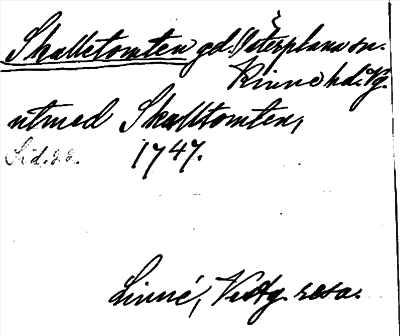 Skalletomten gd. Österplana sn.
Kinne hd. Vg.
utmed Skalltomten,
Sid. 22. 1747.
Linné, Västg. resa.